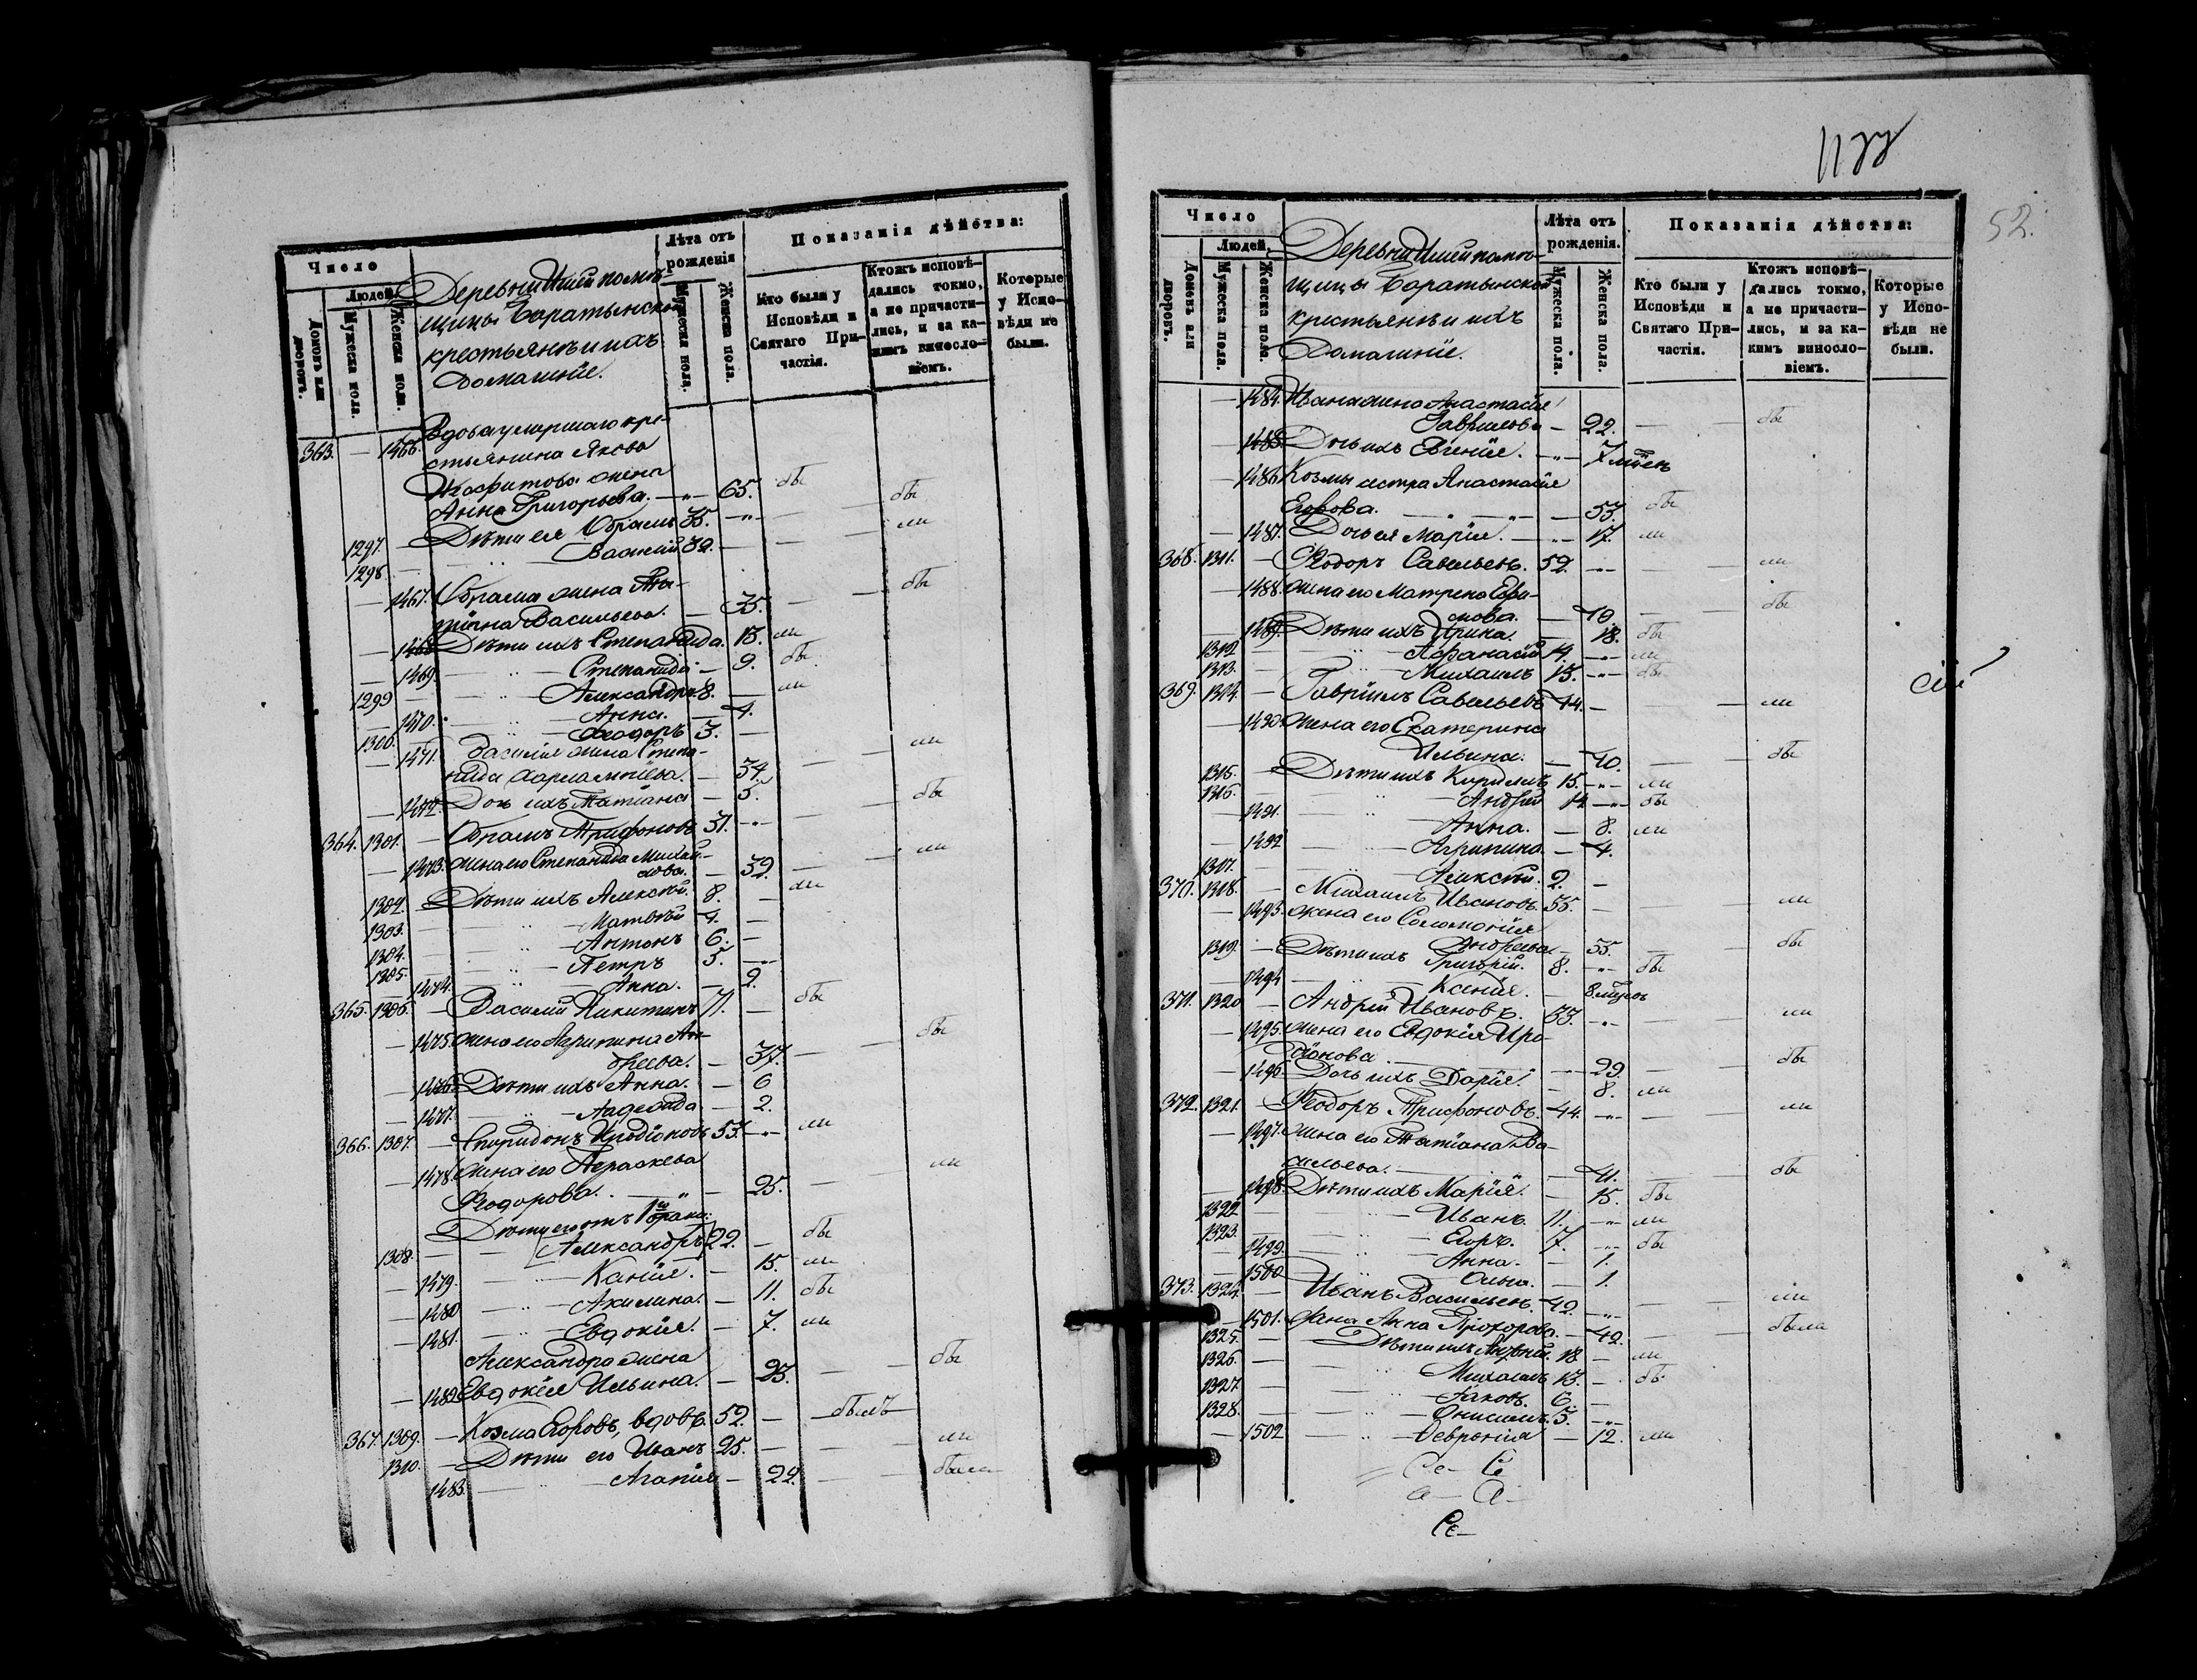 Число
Людей
Домовъ или дворовъ.
Мужеска пола.
Женска пола.
Деревни Ишей помѣ-
щицы Баратынской
крестьянѣ и ихъ
Домашніе.
Лѣта отъ рожденія
Мужеска пола.
Женска пола.
Показанія дѣйства:
Кто были у Исповѣди и Святаго При-частія.
Ктожъ исповѣ-дались токмо, а не причасти-лись, и за ка-кимъ винослo-віемъ.
Которые у Испо-вѣди не были.
363. — 1466. Вдова умершаго кре-
стьянина Якова
жена
Анна Григорьева. — " — 65. бы
1297. — Дѣти ея Абрамъ 35. — " — бы
1298. — Василій 32. — ли
— 1467. Абрама жена
Васильева. — 35. — бы
— 1468. Дѣти ихъ Степанида. 13. ли
— 1469. — Степанида — 9. бы
1299 — Александръ 8. — ли
— 1470. — Анна. — 4.
1300. — Ѳеодоръ 3. —
— 1471. Василія жена Степа-
нида Харлампіева. — 34. — ли
— 1472. Дочь ихъ Татіана — 5. — бы
364. 1301. — Абрамъ Трифоновъ 31. — " —
— 1473. Жена его Степанида Михай-
лова. — 32. — ли
1302. — Дѣти ихъ Алексѣй. 8. — ли
1303. — Матвѣй 4. —
1304. — Антонъ 6. —
1305. — Петръ 5. — " —
— 1474. — Анна. — 2.
365. 1306. — Василій Никитинъ 71. — бы
— 1475. Жена его Агрипина Ан-
дреева. — 37. — бы
— 1476. Дѣти ихъ Анна. — 6
— 1477. — — 2.
366. 1307. — Спиридонъ Иродіоновъ 53. — " — ли
— 1478. Жена его Параскева
Ѳеодорова. — " — 25. — ли
Дѣти его отъ 1го брака:
1308. — Александръ 22. — бы
— 1479. — Ксенія. — 15. ли
— 1480 — Акилина. — 11. бы
— 1481. — Евдокія. — 7. ли
Александра жена
— 1482 Евдокія Ильина. — 23. — бы
367. 1309. — Козма Егоровъ, вдовъ. 52. — былъ
1310. — Дѣти его Иванъ 25. — ли
1483. — Агапія — 22. — была
1177
52.
Число
Людей
Домовъ или дворовъ.
Мужеска пола.
Женска пола.
Деревни Ишей помѣ-
щицы Баратынской
крестьянѣ и ихъ
Домашніе.
Лѣта отъ рожденія.
Мужеска пола.
Женска пола.
Показанія дѣйства:
Кто были у Исповѣди и Святаго При-частія.
Ктожъ исповѣ-дались токмо, а не причасти-лись, и за ка-кимъ винослo-віемъ.
Которые у Испо-вѣди не были.
— 1484. Ивана жена Анастасія
Гаврилова — 22. — бы
— 1485. Дочь ихъ Евгенія. — " — 7 мѣсец
— 1486. Козмы сестра Анастасія
Егорова. — " — 53. бы
— 1487. Дочь ея Марія. — " — 17. ли
368. 1311. — Ѳеодоръ Савельевъ. 52. — " — ли
— 1488. Жена его Матрена Ефи-
мова. — 49. — бы
— 1489. Дѣти ихъ Ирина. — 18. бы
1312. — Афанасій 14. — " — ли
1313. — Михаилъ 15. — " — бы
369. 1314. — Гавріилъ Савельевъ 44. — ли
— 1490. Жена его Екатерина
Ильина. — 40. — бы
1315. — Дѣти ихъ Кирилъ 15. — " — ли
1316. — Андрей 14 — " — бы
— 1491. — Анна. — 8. ли
— 1492 — Агрипина — 4.
1317. — Алексѣй. 2. —
370. 1318. — Михаилъ Ивановъ. 55. — ли
— 1493. Жена его Соломонія
Андреева — 55. — бы
1319. — Дѣти ихъ Григорій. 8. — " — бы
— 1494 — Ксенія. — 8 мѣсец
371. 1320 — Андрей Ивановъ. 33. — " — ли
— 1495. Жена его Евдокія Иро-
діонова. — 29. — бы
— 1496. Дочь ихъ Дарія. — 8. ли
372. 1321. — Ѳеодоръ Трифоновъ. 44. — " — ли
— 1497. Жена его Татіана Ва-
сильева. — 41. — бы
— 1498. Дѣти ихъ Марія. — 15. бы
1322 — Иванъ 11. — " — ли
1323. — Егоръ. 7. — " — бы
— 1499. — Анна. — 1.
— 1500 — Ольга. — 1.
373. 1324. — Иванъ Васильевъ. 42. — " — ли
— 1501. Жена Анна Прохорова. — 42. — была
1325. — Дѣти ихъ Андрей. 18 — ли
1326. — Михаилъ 13. — бы
1327. — Іаковъ. 6. —
1328. — Онисимъ 3. — " —
— 1502 — Февронія — 12. ли